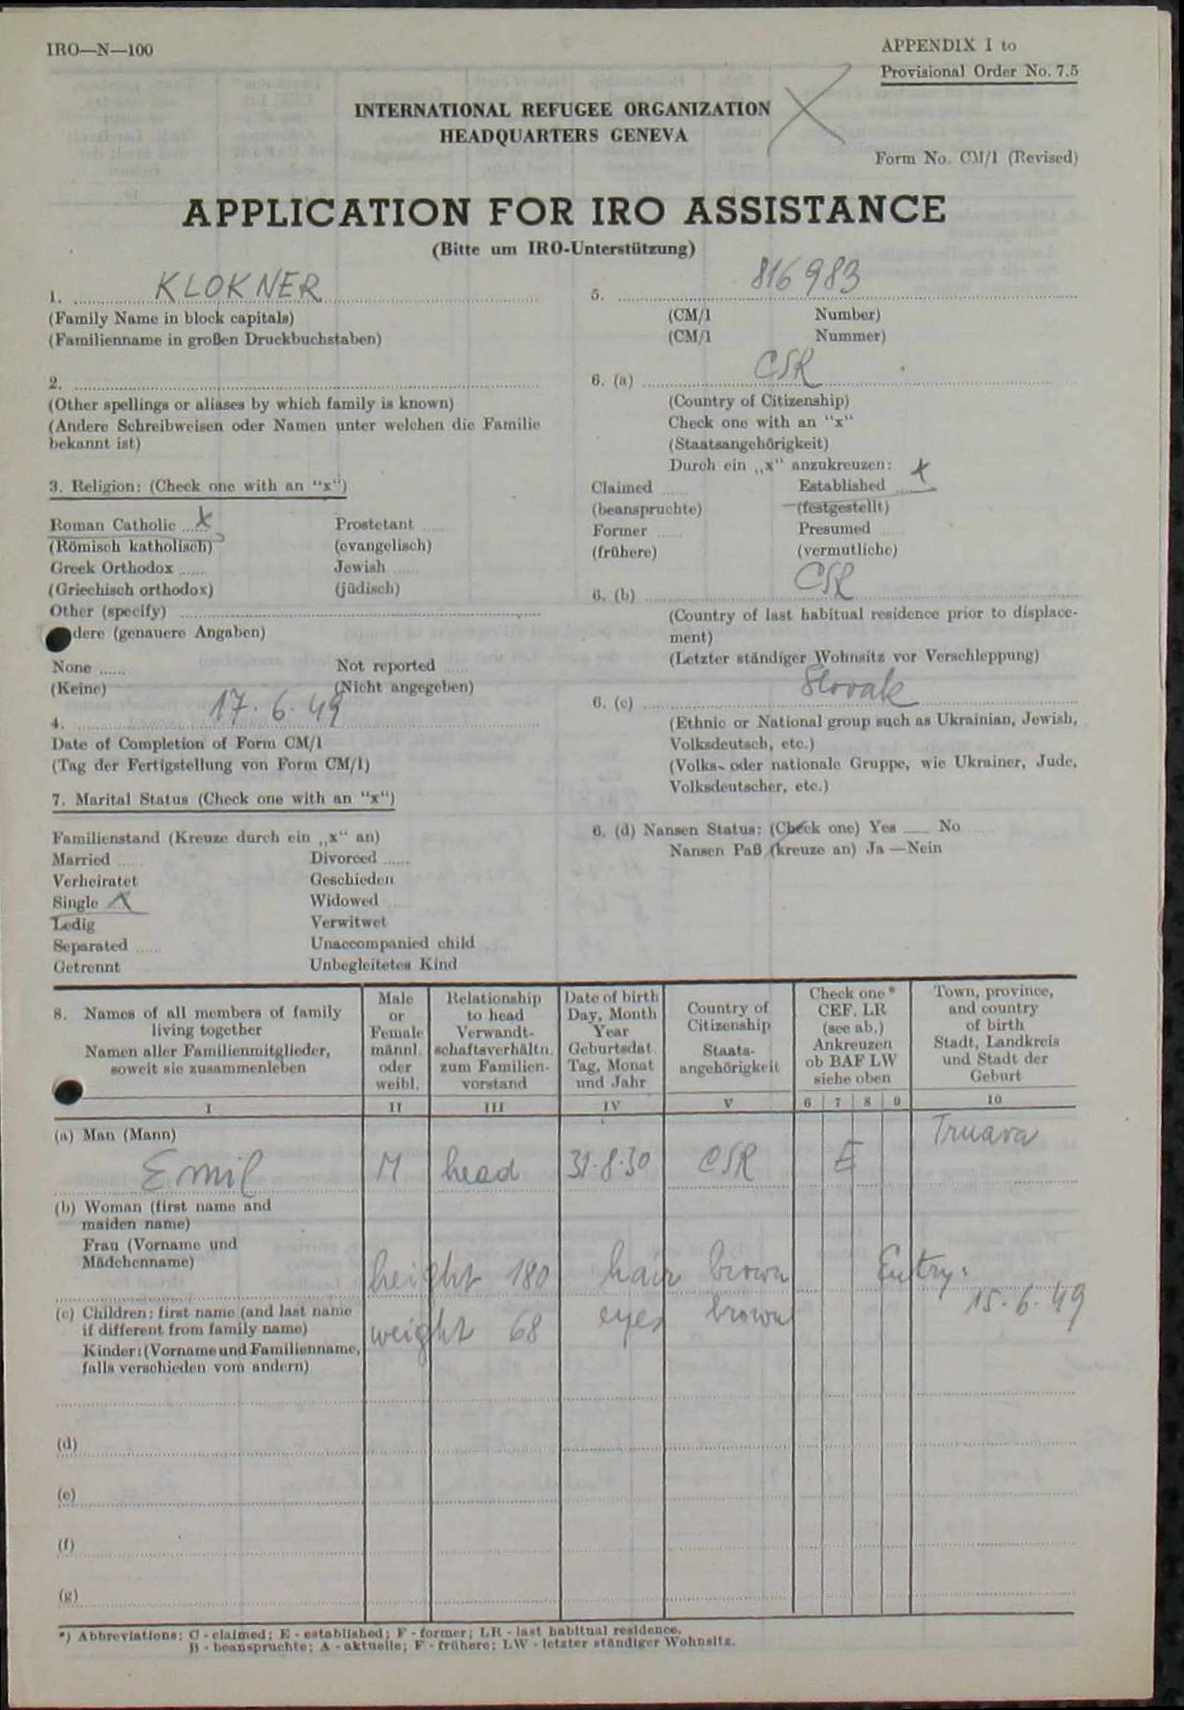 IRO—N—100
APPENDIX I to
Provisional Order No. 7.5
INTERNATIONAL REFUGEE ORGANIZATION
HEADQUARTERS GENEVA
Form No. CM/1 (Revised)
APPLICATION FOR IRO ASSISTANCE
(Bitte um IRO-Unterstützung)
1. KLOKNER
(Family Name in block capitals)
(Familienname in großen Druckbuchstaben)
2.
(Other spellings or aliases by which family is known)
(Andere Schreibweisen oder Namen unter welchen die Familie
bekannt ist)
3. Religion: (Check one with an "x")
Roman Catholic x Prostetant
(Römisch katholisch) (evangelisch)
Greek Orthodox Jewish
(Griechisch orthodox) (jüdisch)
Other (specify)
dere (genauere Angaben)
None Not reported
(Keine) (Nicht angegeben)
4. 17.6.49
Date of Completion of Form CM/1
(Tag der Fertigstellung von Form CM/1)
7. Marital Status (Check one with an "x")
Familienstand (Kreuze durch ein „x" an)
Married Divorced
Verheiratet Geschieden
Single X Widowed
Ledig Verwitwet
Separated Unaccompanied child
Getrennt Unbegleitetes Kind
5. 816983
(CM/1 Number)
(CM/1 Nummer)
6. (a) CSR
(Country of Citizenship)
Check one with an "x"
(Staatsangehörigkeit)
Durch ein „x" anzukreuzen:
Claimed Established x
(beanspruchte) (festgestellt)
Former Presumed
(frühere) (vermutliche)
6. (b) CSR
(Country of last habitual residence prior to displace-
ment)
(Letzter ständiger Wohnsitz vor Verschleppung)
6. (c) Slovak
(Ethnic or National group such as Ukrainian, Jewish,
Volksdeutsch, etc.)
(Volks- oder nationale Gruppe, wie Ukrainer, Jude,
Volksdeutscher, etc.)
6. (d) Nansen Status: (Check one) Yes No
Nansen Paß (kreuze an) Ja —Nein
8. Names of all members of family
living together
Namen aller Familienmitglieder,
soweit sie zusammenleben
Male
or
Female
männl.
oder
weibl.
Relationship
to head
Verwandt-
schaftsverhältn.
zum Familien-
vorstand
Date of birth
Day, Month
Year
Geburtsdat.
Tag, Monat
und Jahr
Country of
Citizenship
Staats-
angehörigkeit
Check one *
CEF. LR
(see ab.)
Ankreuzen
ob BAF LW
siehe oben
Town, province,
and country
of birth
Stadt, Landkreis
und Stadt der
Geburt
I II III IV V 6 7 8 9 10
(a) Man (Mann)
Emil M head 31.8.30 CSR E
(b) Woman (first name and
maiden name)
Frau (Vorname und
Mädchenname)
height 180 hair brown Entry:
15.6.49
(c) Children: first name (and last name
if different from family name)
Kinder: (Vorname und Familienname,
falls verschieden vom andern)
weight 68 eyes brown
(d)
(e)
(f)
(g)
*) Abbreviations: C - claimed; E - established; F - former; LR - last habitual residence.
B - beanspruchte; A - aktuelle; F - frühere; LW - letzter ständiger Wohnsitz.